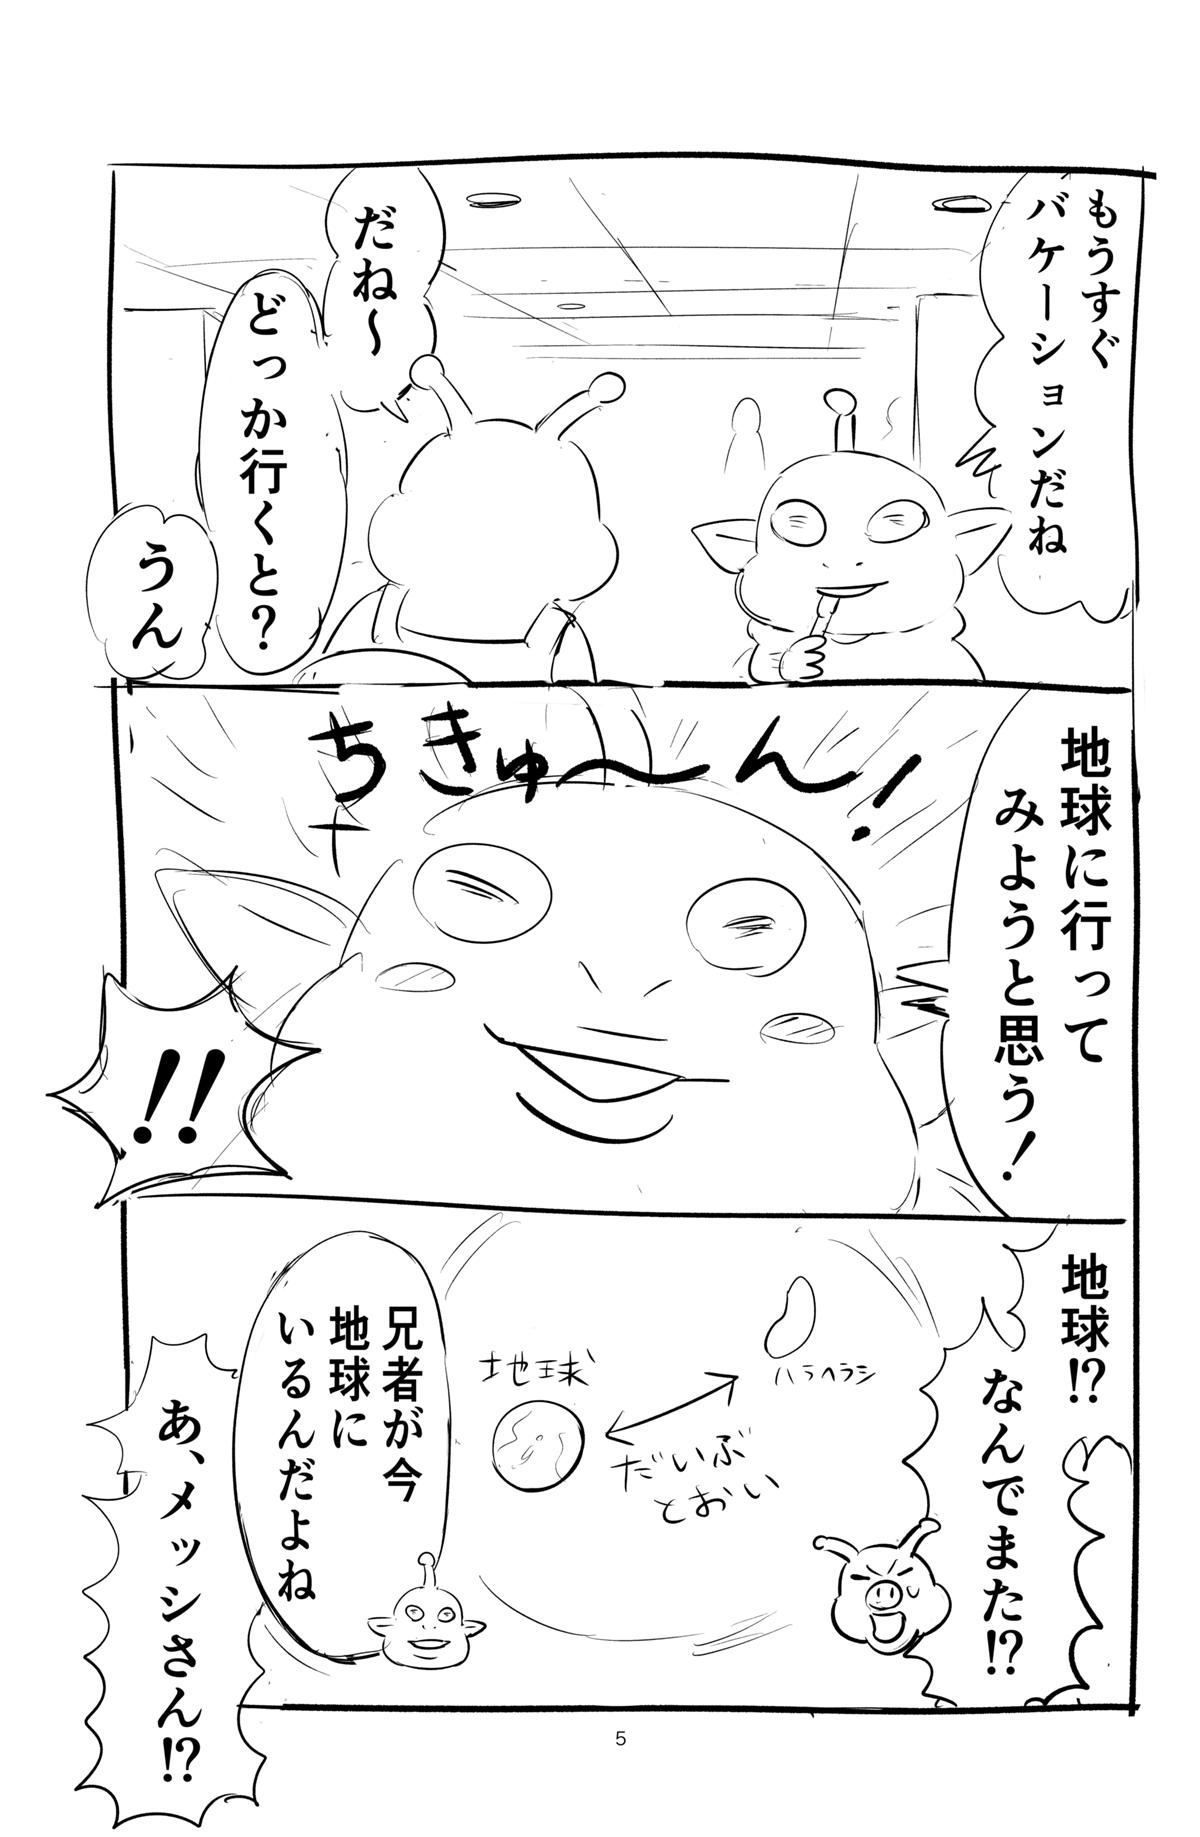 もうすぐ
バケーションだね
だね〜
どっか行くと?
うん
地球に行って
みようと思う!
ちきゅ〜ん!
!!
地球!?
なんでまた!?
ハラヘラシ
地球
だいぶ
とおい
兄者が今
地球に
いるんだよね
あ、メッシさん!?
5